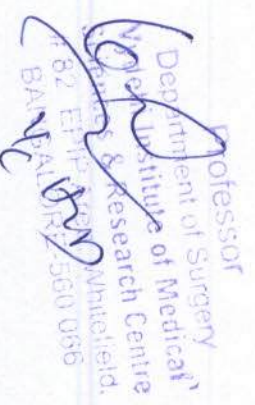 Professor
Department of Surgery
Institute of Medical
& Research Centre
# 82 EPIP Whitefield,
BANGALORE-560 066